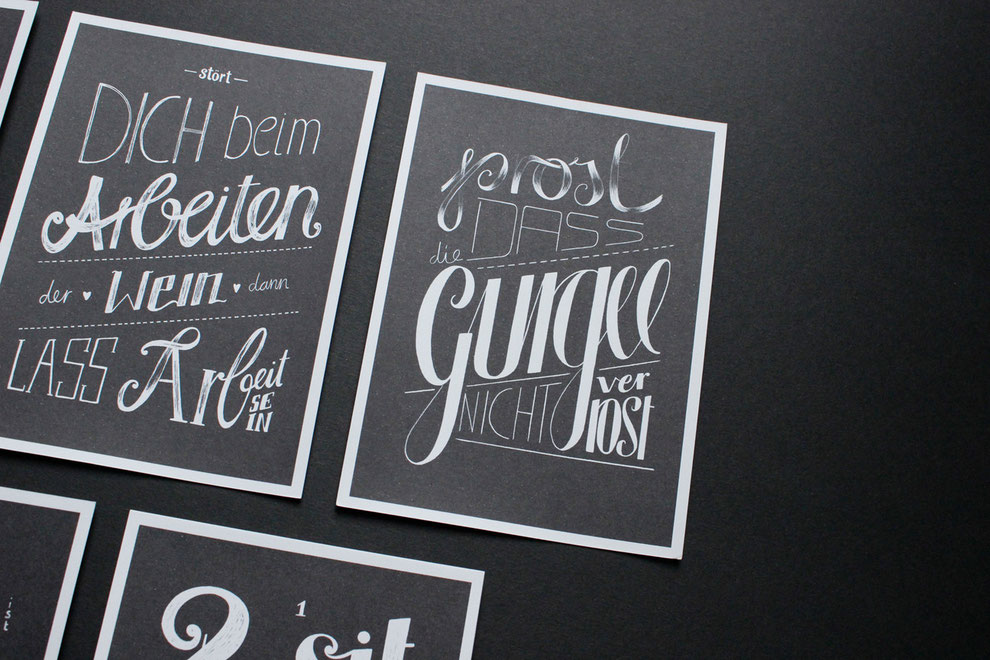 – stört –
DICH beim
Arbeiten
der ♥ wein ♥ dann
LASS Arbeit
SE
IN
prost
DASS
die
gurgel
NICHT ver
rost
ist
1